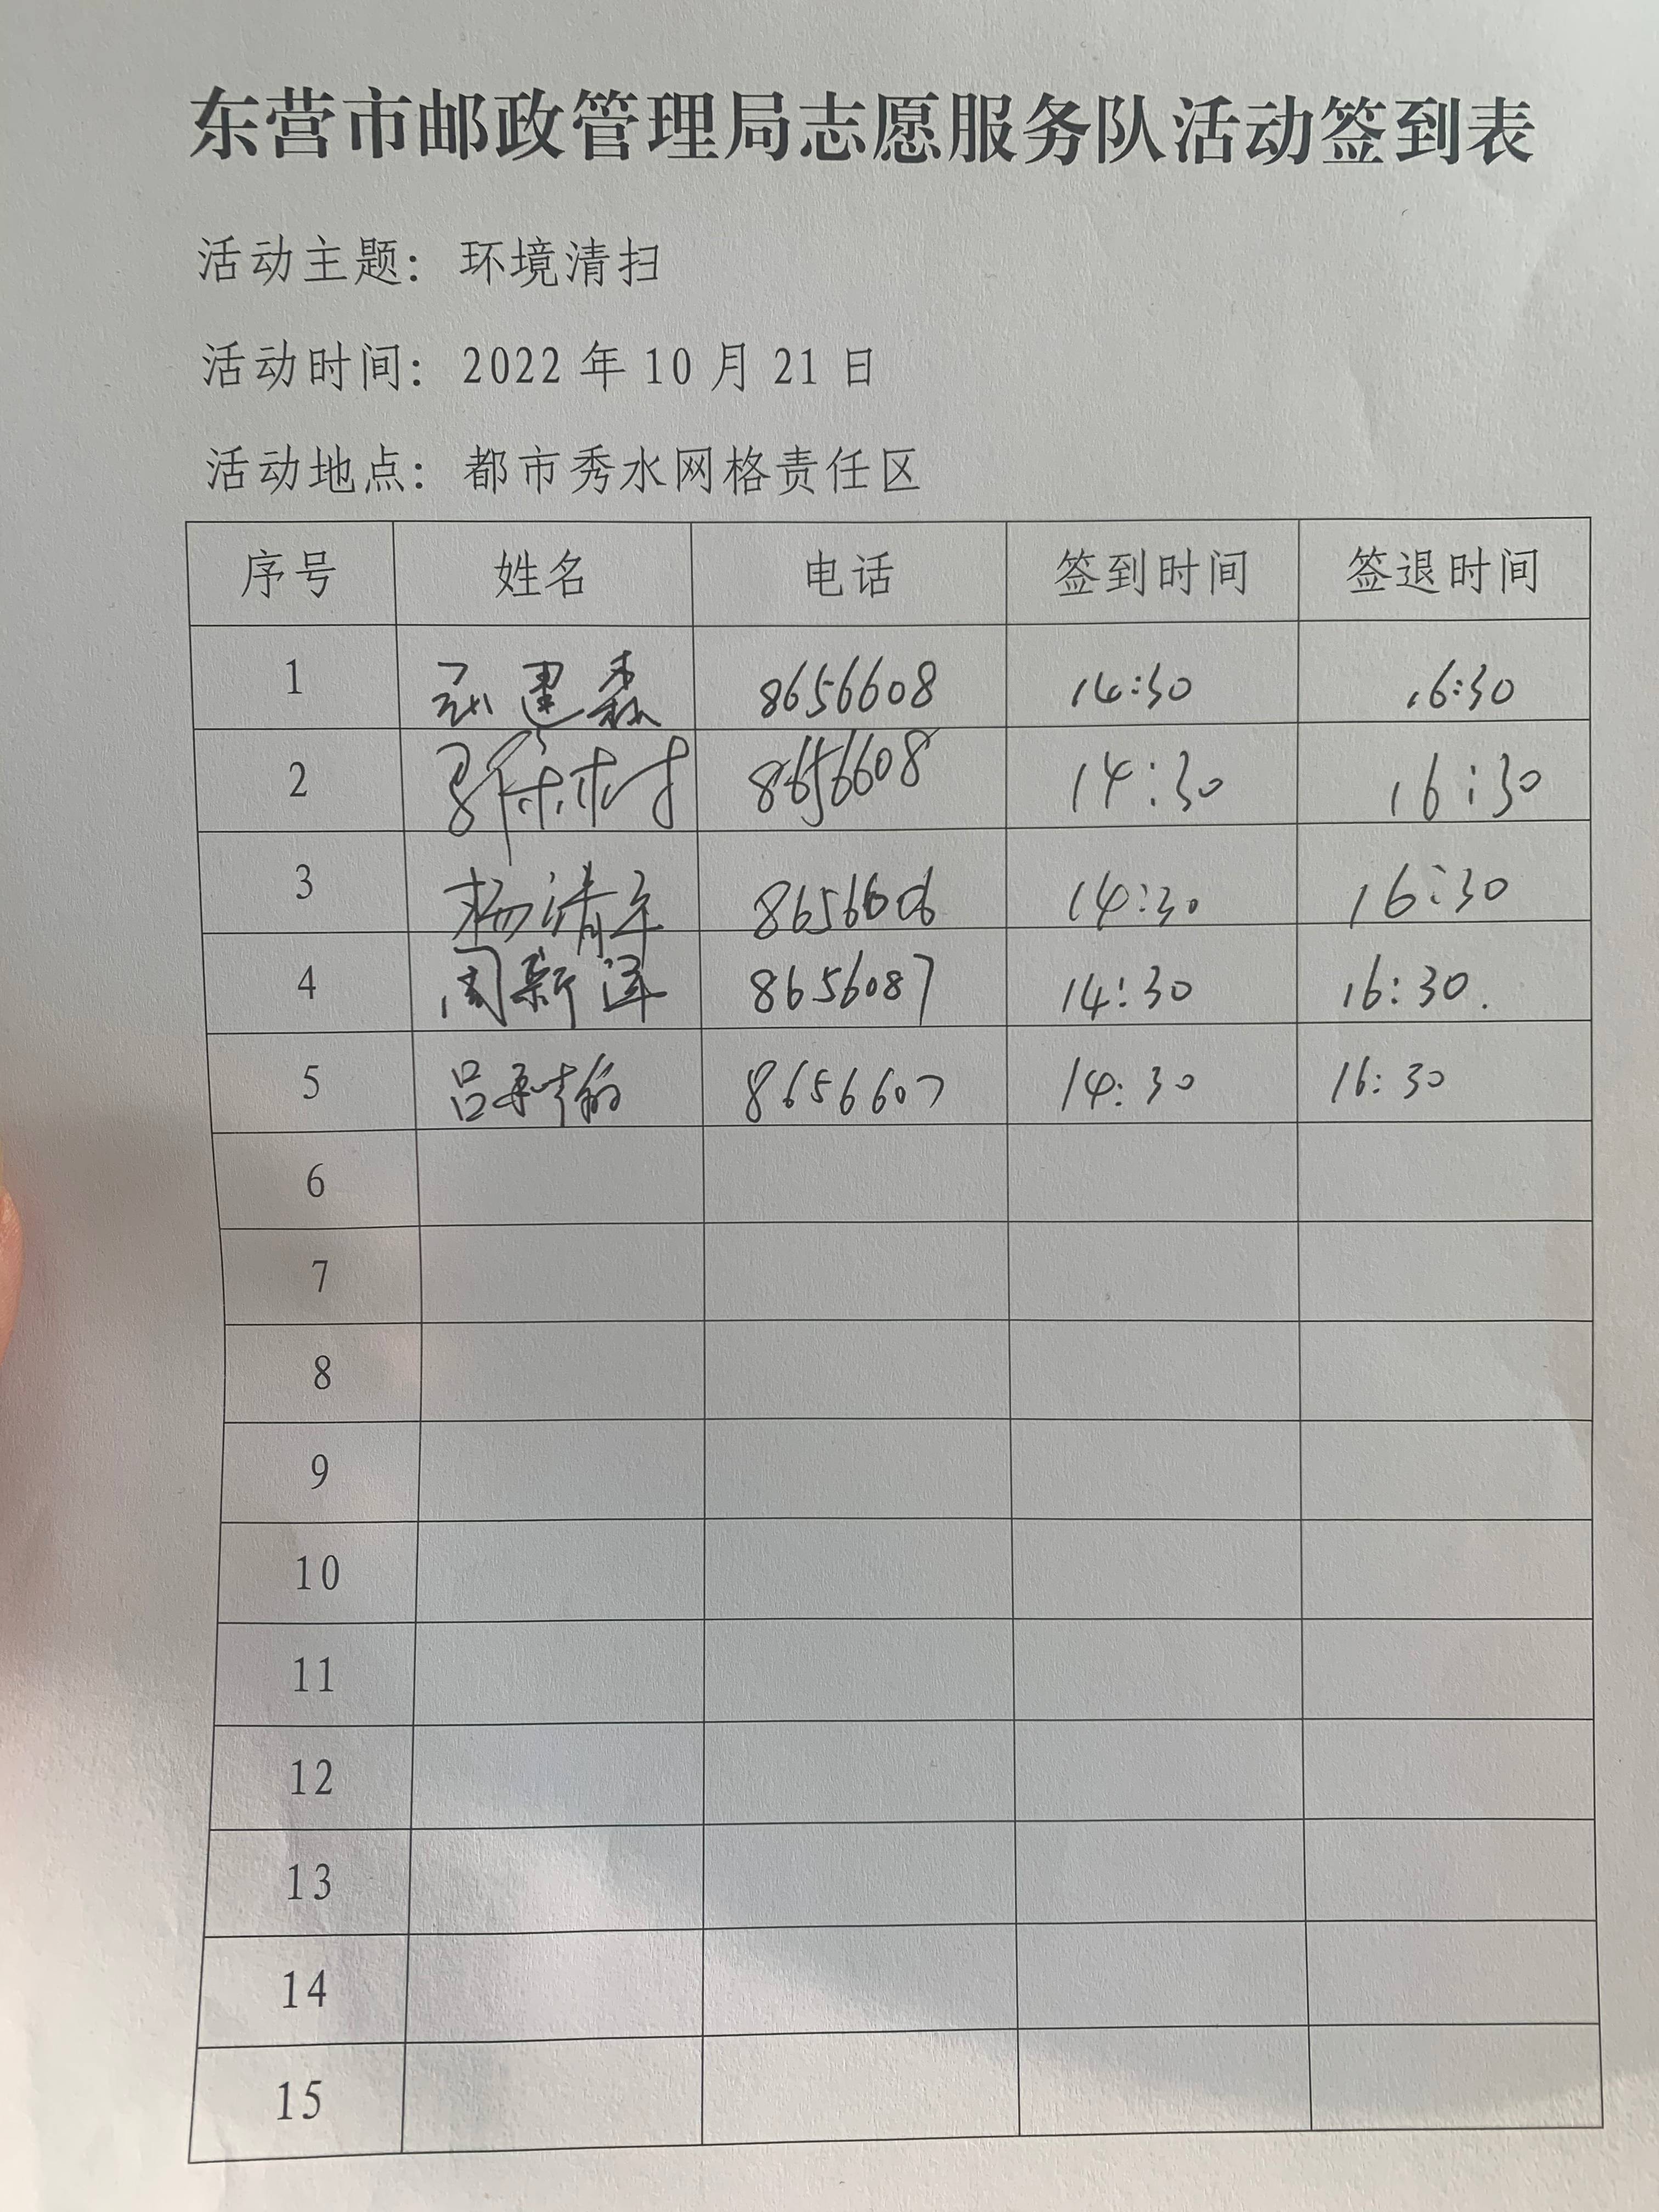 东营市邮政管理局志愿服务队活动签到表
活动主题：环境清扫
活动时间：2022年10月21日
活动地点：都市秀水网格责任区
序号 姓名 电话 签到时间 签退时间
1 建森 8656608 14:30 16:30
2 8656608 14:30 16:30
3 杨清年 8656606 14:30 16:30
4 周新泽 8656087 14:30 16:30.
5 吕 8656607 14:30 16:30
6
7
8
9
10
11
12
13
14
15